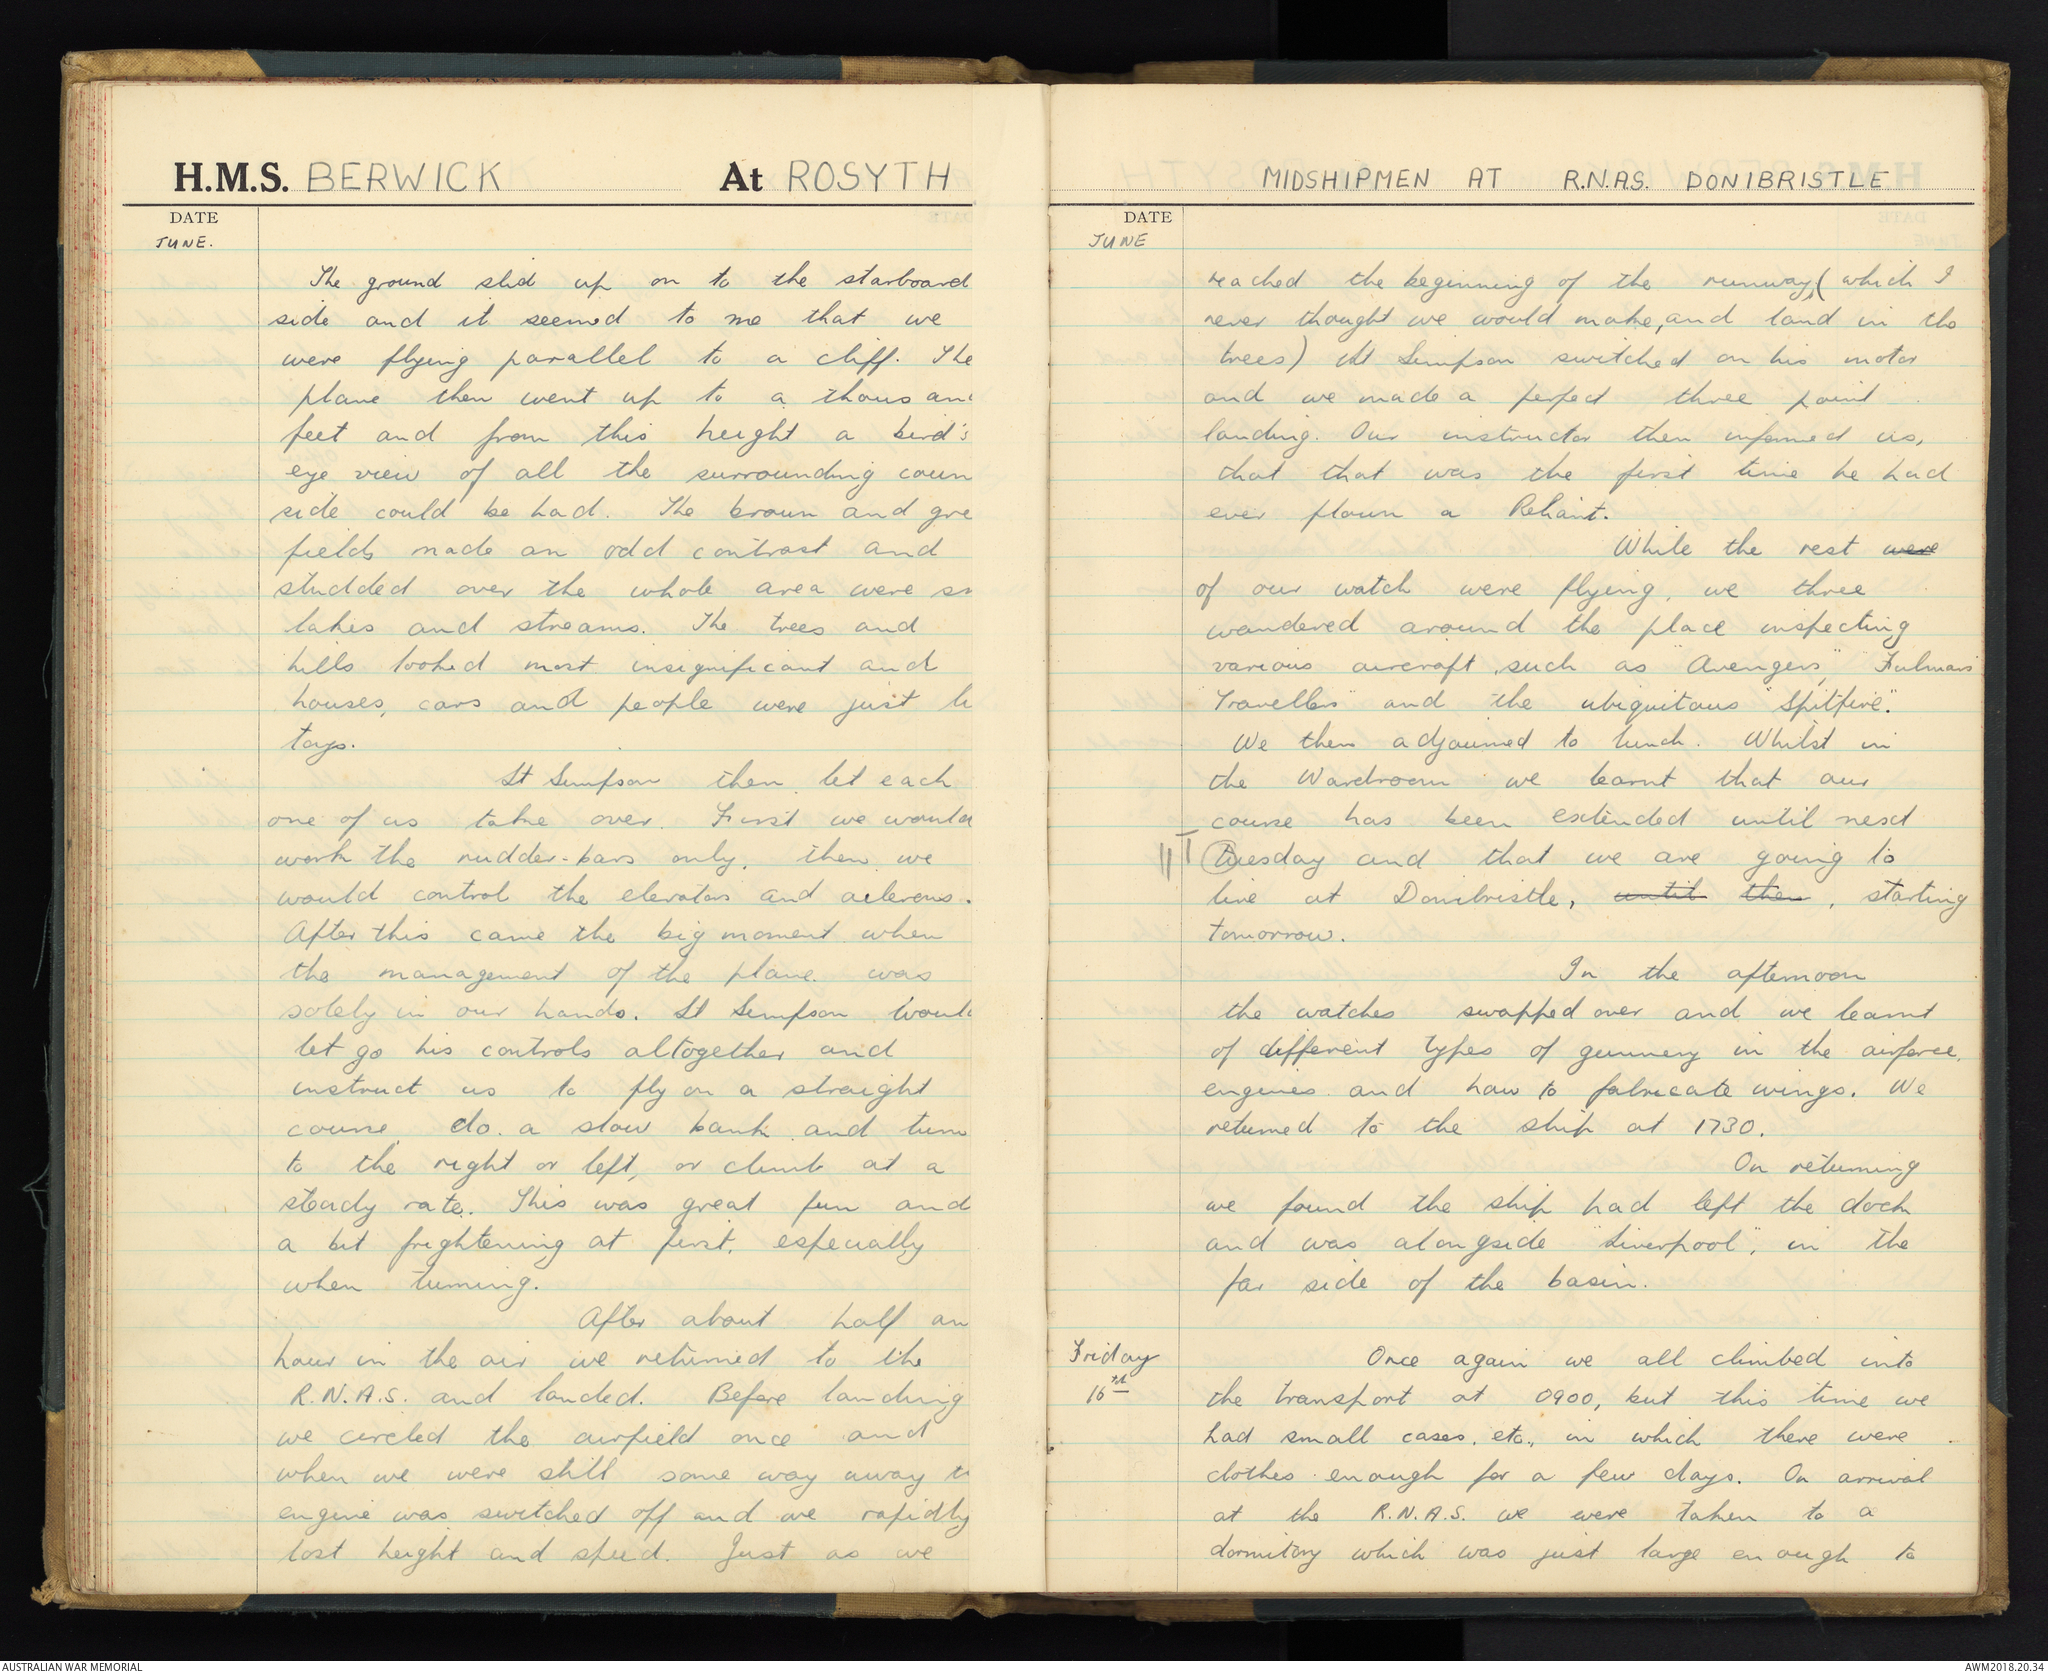 H.M.S. BERWICK At ROSYTH
DATE
JUNE.
The ground slid up on to the starboard
side and it seemed to me that we
were flying parallel to a cliff. The
plane then went up to a thousand
feet and from this height a bird's
eye view of all the surrounding coun
side could be had. The brown and gre
fields made an odd contrast and
studded over the whole area were sm
lakes and streams. The trees and
hills looked most insignificant and
houses, cars and people were just li
toys.
Lt Simpson then let each
one of us take over. First we would
work the rudder-bars only, then we
would control the elevators and ailerons.
After this came the big moment when
the management of the plane was
solely in our hands. Lt Simpson would
let go his controls altogether and
instruct us to fly on a straight
course, do a slow bank and turn
to the right or left, or climb at a
steady rate. This was great fun and
a bit frightening at first, especially
when turning.
After about half an
hour in the air we returned to the
R.N.A.S. and landed. Before landing
we circled the airfield once and
when we were still some way away t
engine was switched off and we rapidly
lost height and speed. Just as we
MIDSHIPMEN AT R.N.A.S. DONIBRISTLE
DATE
JUNE
reached the beginning of the runway, (which I
never thought we would make, and land in the
trees) Lt Simpson switched on his motor
and we made a perfect three point
landing. Our instructor then informed us,
that that was the first time he had
ever flown a Reliant.
While the rest were
of our watch were flying, we three
wandered around the place inspecting
various aircraft, such as "Avengers", "Fulmars"
"Travellers" and the ubiquitous "Spitfire".
We then adjourned to lunch. Whilst in
the Wardroom we learnt that our
course has been extended until next
T tuesday and that we are going to
live at Donibristle, until then, starting
tomorrow.
In the afternoon
the watches swapped over and we learnt
of different types of gunnery in the airforce,
engines and how to fabricate wings. We
returned to the ship at 1730.
On returning
we found the ship had left the dock
and was alongside "Liverpool", in the
far side of the basin.
Friday
16th
Once again we all climbed into
the transport at 0900, but this time we
had small cases, etc., in which there were
clothes enough for a few days. On arrival
at the R.N.A.S. we were taken to a
dormitory which was just large enough to
AUSTRALIAN WAR MEMORIAL
AWM2018.20.34